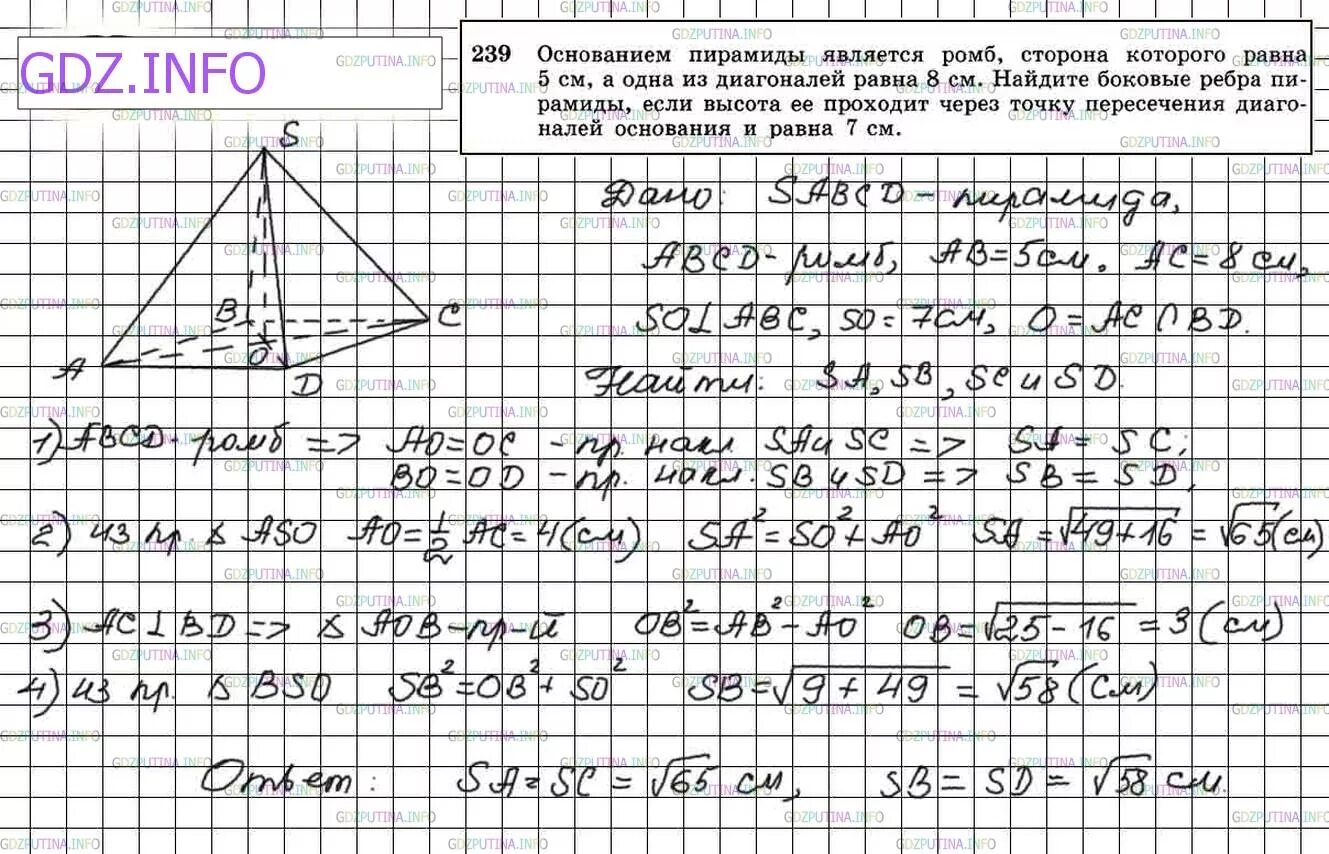 GDZ.INFO
239 Основанием пирамиды является ромб, сторона которого равна
5 см, а одна из диагоналей равна 8 см. Найдите боковые ребра пи-
рамиды, если высота ее проходит через точку пересечения диаго-
налей основания и равна 7 см.
S
B
C
A
O
D
Дано: SABCD - пирамида,
ABCD - ромб, AB = 5 см. AC = 8 см,
SO ⊥ ABC, SO = 7 см, O = AC ∩ BD.
Найти: SA, SB, SC и SD.
1) ABCD - ромб => AO = OC - пр. накл. SA и SC => SA = SC;
BO = OD - пр. накл. SB и SD => SB = SD,
2) из пр. △ ASO AO = 1/2 AC = 4 (см) SA² = SO² + AO² SA = √49+16 = √65 (см)
3) AC ⊥ BD => △ AOB - пр-й OB² = AB² - AO² OB = √25-16 = 3 (см)
4) из пр. △ BSO SB² = OB² + SO² SB = √9+49 = √58 (см)
Ответ: SA = SC = √65 см, SB = SD = √58 см.
GDZPUTINA.INFO